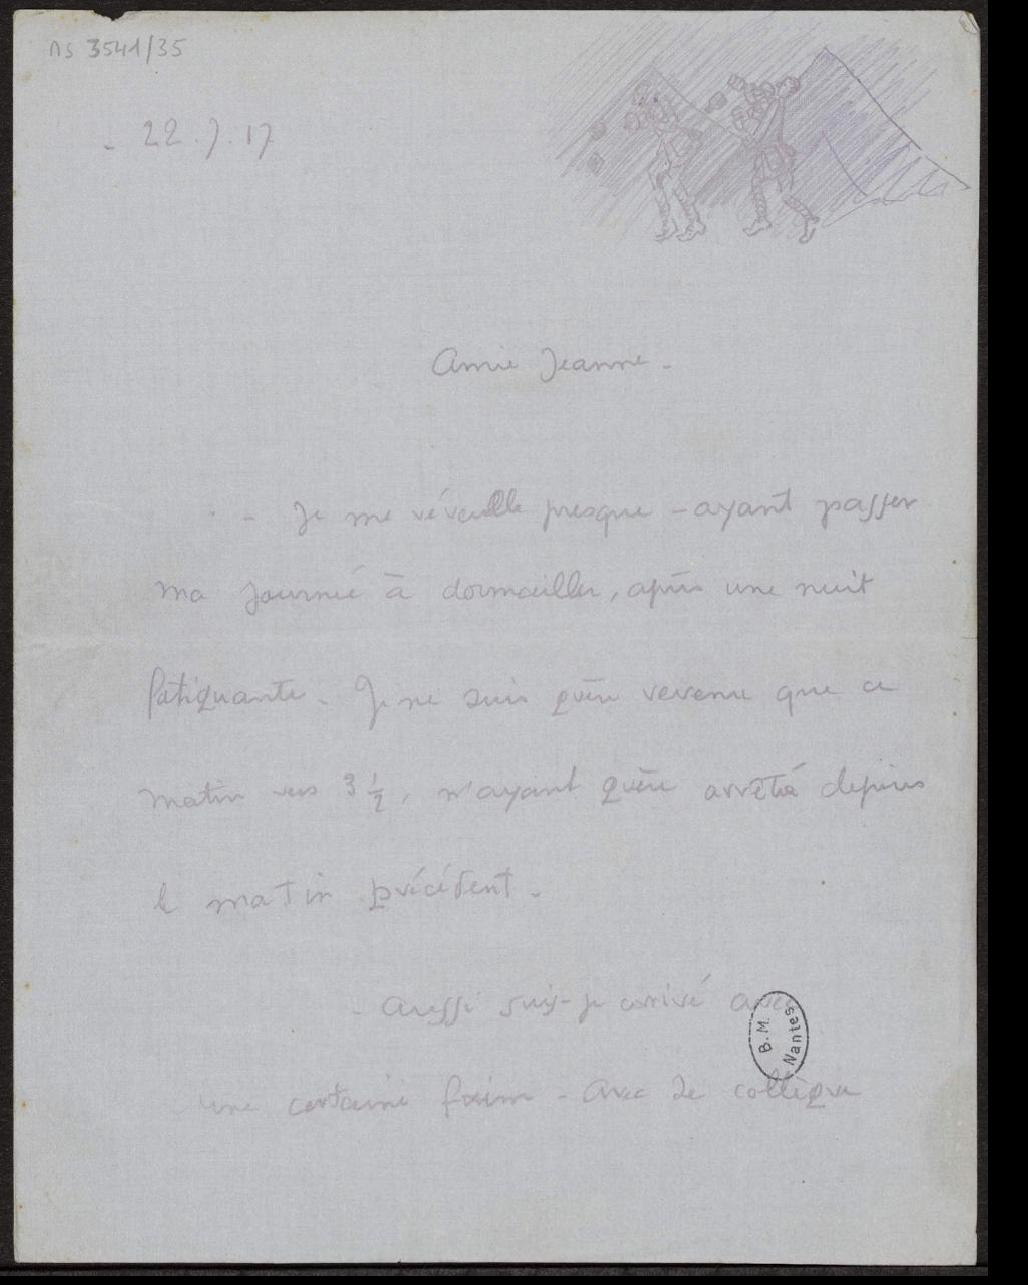 MS 3541/35
- 22.7.17
Amie Jeanne -
- Je me réveille presque - ayant passer
ma journée à dormailler, après une nuit
fatiguante - Je ne suis guère revenu que ce
matin vers 3 1/2, n'ayant guère arrêté depuis
le matin précédent -
- Aussi suis-je arrivé avec
une certaine faim - avec le collègue
B.M.
Nantes